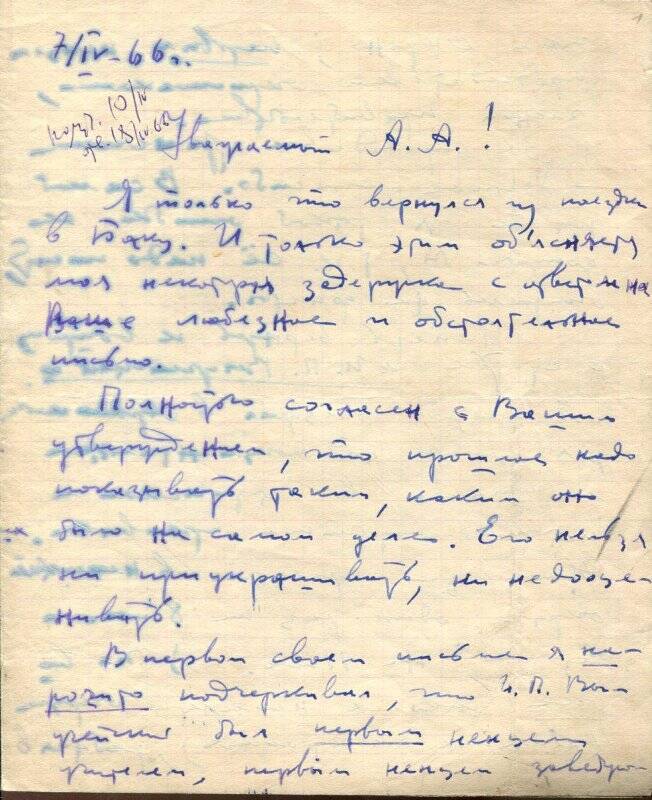 1
7/IV-66 г.
получ. 10/IV
отв. 18/IV 66
Уважаемый А. А.!
Я только что вернулся из поездки
в Баку. И только этим объясняется
моя некоторая задержка с ответом на
Ваше любезное и обстоятельное
письмо.
Полностью согласен с Вашим
утверждением, что прошлое надо
показывать таким, каким оно
было на самом деле. Его нельзя
ни приукрашивать, ни недооце-
нивать.
В первом своем письме я не-
 подчеркивал, что И. П. Вы-
учейский был первым ненцем
учителем, первым ненцем заведую-